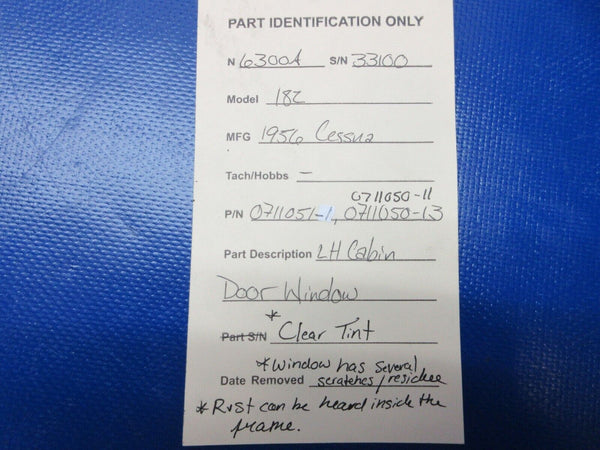 PART IDENTIFICATION ONLY
N 6300A S/N 33100
Model 182
MFG 1956 Cessna
Tach/Hobbs —
0711050-11
P/N 0711051-1, 0711050-13
Part Description LH Cabin
Door Window
Part S/N * Clear Tint
*Window has several
Date Removed scratches/residue
* Rust can be heard inside the
frame.